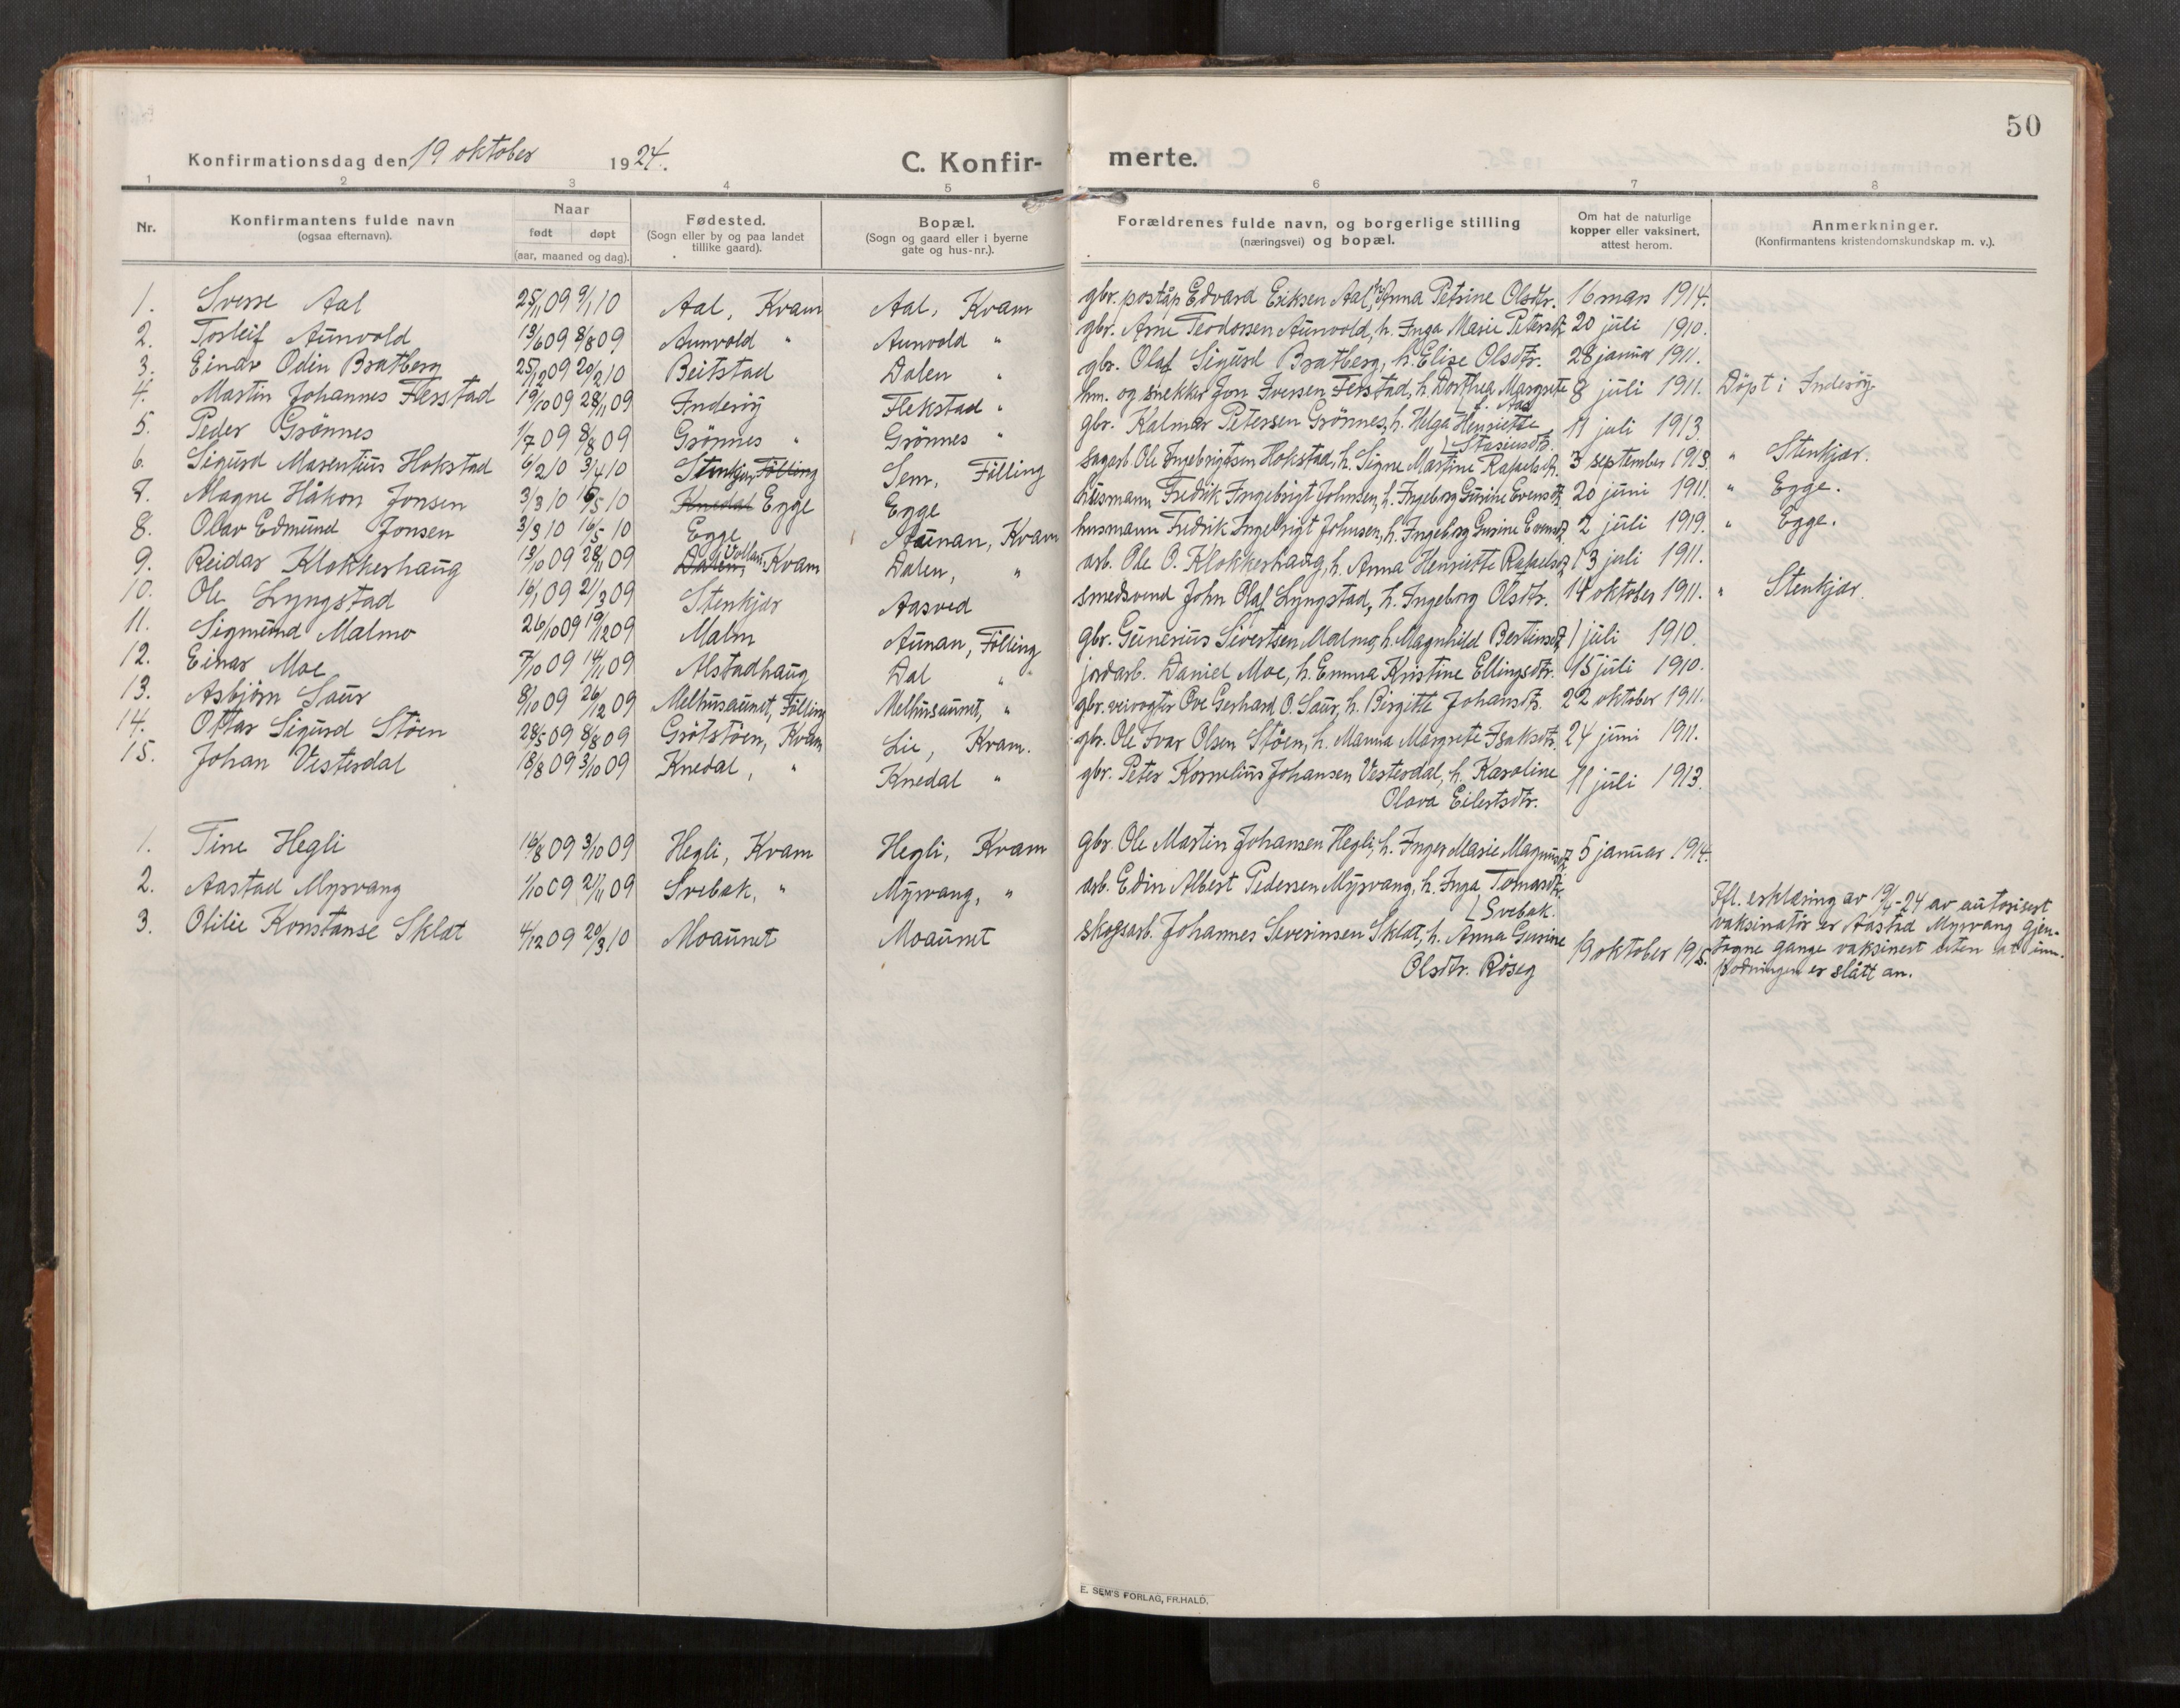 50
Konfirmationsdag den 19 oktober 1924. C. Konfirmerte.
1 2 3 4 5 6 7 8
Nr. Konfirmantens fulde navn (ogsaa efternavn). Naar født døpt (aar, maaned og dag). Fødested. (Sogn eller by og paa landet tillike gaard). Bopæl. (Sogn og gaard eller i byerne gate og hus-nr.). Forældrenes fulde navn, og borgerlige stilling (næringsvei) og bopæl. Om hat de naturlige kopper eller vaksinert, attest herom. Anmerkninger. (Konfirmantens kristendomskundskap m. v.).
1. Sverre Aal 25/11 09 9/1 10 Aal, Kvam Aal, Kvam gbr. poståp Edvard Eriksen Aal, h. Anna Petrine Olsdtr. 16 mars 1914.
2. Torleif Aunvold 13/6 09 8/8 09 Aunvold " Aunvold " gbr. Arne Teodorsen Aunvold, h. Inga Marie Petersdtr. 20 juli 1910.
3. Einar Odin Bratberg 25/12 09 20/2 10 Beitstad Dalen " gbr. Olaf Sigurd Bratberg, h. Elise Olsdtr. 28 januar 1911.
4. Martin Johannes Ferstad 19/10 09 28/11 09 Inderöy Flekstad " hm. og snekker Jon Iversen Ferstad, h. Dorthea Margrete 8 juli 1911. Döpt i Inderöy
5. Peder Grönnes 1/7 09 8/8 09 Grönnes " Grönnes " gbr. Kalmar Petersen Grönnes, h. Helga Henriette Stasiusdtr. 11 juli 1913.
6. Sigurd Marentius Hokstad 6/2 10 3/4 10 Stenkjær, Fölling Sem, Fölling sagarb. Ole Ingebrigtsen Hokstad, h. Signe Martine Rafaelsdtr. 3 september 1913. " Stenkjær.
7. Magne Håkon Jonsen 3/3 10 16/5 10 Knedal Egge Egge husmann Fredrik Ingebrigt Johnsen, h. Ingeborg Gurine Evensdtr. 20 juni 1911. " Egge.
8. Olav Edmund Jonsen 3/3 10 16/5 10 Egge Aunan, Kvam husmann Fredrik Ingebrigt Johnsen, h. Ingeborg Gurine Evensdtr. 2 juli 1919. " Egge.
9. Reidar Klokkerhaug 13/10 09 28/11 09 Dalen, Vollan, Kvam Dalen, " arb. Ole O. Klokkerhaug, h. Anna Henriette Rafaelsdtr. 13 juli 1911.
10. Ole Lyngstad 16/1 09 21/3 09 Stenkjær Aasved smedsvend John Olaf Lyngstad, h. Ingeborg Olsdtr. 14 oktober 1911. " Stenkjær.
11. Sigmund Malmo 26/10 09 19/12 09 Malm Aunan, Fölling gbr. Gunerius Sivertsen Malmo, h. Magnhild Bertinsdtr. 1 juli 1910.
12. Einar Moe 7/10 09 14/11 09 Alstadhaug Dal " jordarb. Daniel Moe, h. Emma Kristine Ellingsdtr. 15 juli 1910.
13. Asbjörn Saur 8/10 09 26/12 09 Melhusaunet, Fölling Melhusaunet, " gbr. veivogter Ove Gerhard O. Saur, h. Birgitte Johansdtr. 22 oktober 1911.
14. Ottar Sigurd Stöen 28/5 09 8/8 09 Grötstöen, Kvam Lie, Kvam. gbr. Ole Ivar Olsen Stöen, h. Manna Margrete Isaksdtr. 24 juni 1911.
15. Johan Vesterdal 18/8 09 3/10 09 Knedal, " Knedal " gbr. Peter Kornelius Johansen Vesterdal, h. Karoline Olava Eilertsdtr. 11 juli 1913.
1. Tine Hegli 16/8 09 3/10 09 Hegli, Kvam Hegli, Kvam gbr. Ole Martin Johansen Hegli, h. Inger Marie Magnusdtr. 5 januar 1914.
2. Aastad Myrvang 1/10 09 21/11 09 Svebak, " Myrvang, " arb. Edin Albert Pedersen Myrvang, h. Inga Tomasdtr. Svebak.
3. Otilie Konstanse Sklæt 4/12 09 20/3 10 Moaunet Moaunet skogsarb. Johannes Severinsen Sklæt, h. Anna Gurine Olsdtr. Röseg 19 oktober
Ifl. erklæring av av autorisert
vaksinatör er Aastad Myrvang gjen-
tagne gange vaksinert uten at inn-
podningen er slått an.
E. SEM'S FORLAG, FR.HALD.